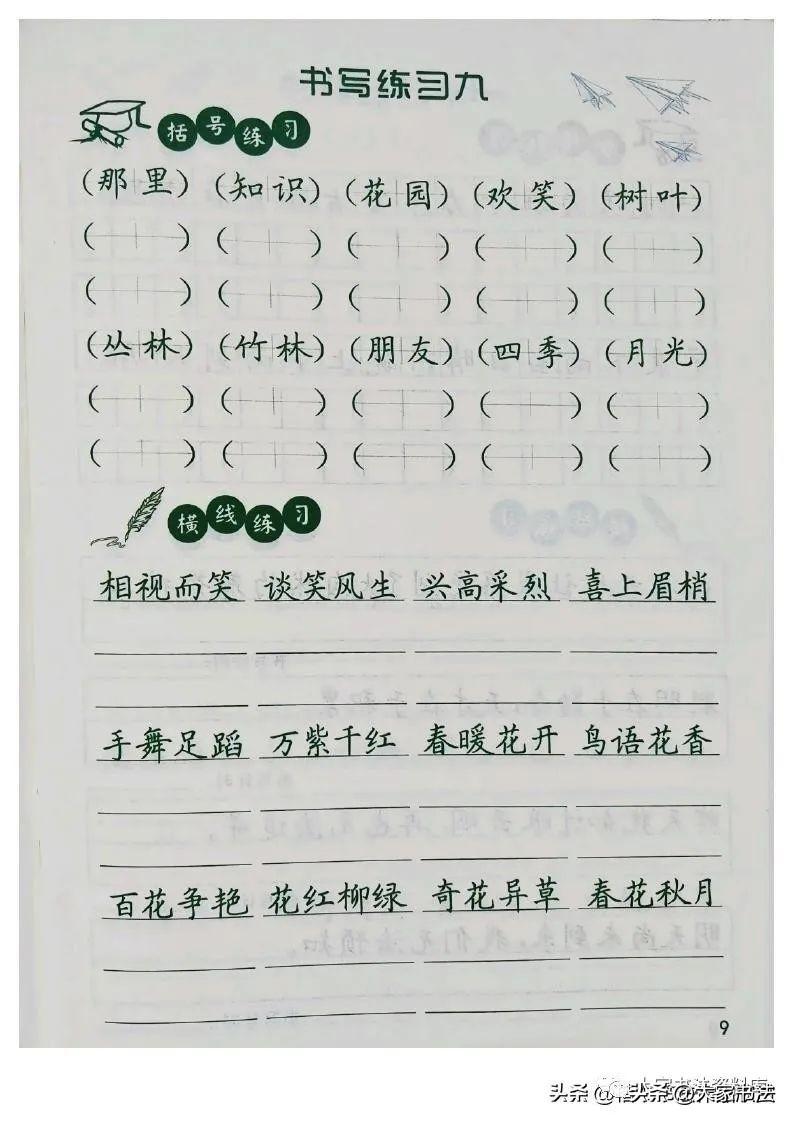 书写练习九
括号练习
(那里) (知识) (花园) (欢笑) (树叶)
( ) ( ) ( ) ( ) ( )
( ) ( ) ( ) ( ) ( )
(丛林) (竹林) (朋友) (四季) (月光)
( ) ( ) ( ) ( ) ( )
( ) ( ) ( ) ( ) ( )
横线练习
相视而笑 谈笑风生 兴高采烈 喜上眉梢
手舞足蹈 万紫千红 春暖花开 鸟语花香
百花争艳 花红柳绿 奇花异草 春花秋月
9
头条@大家书法